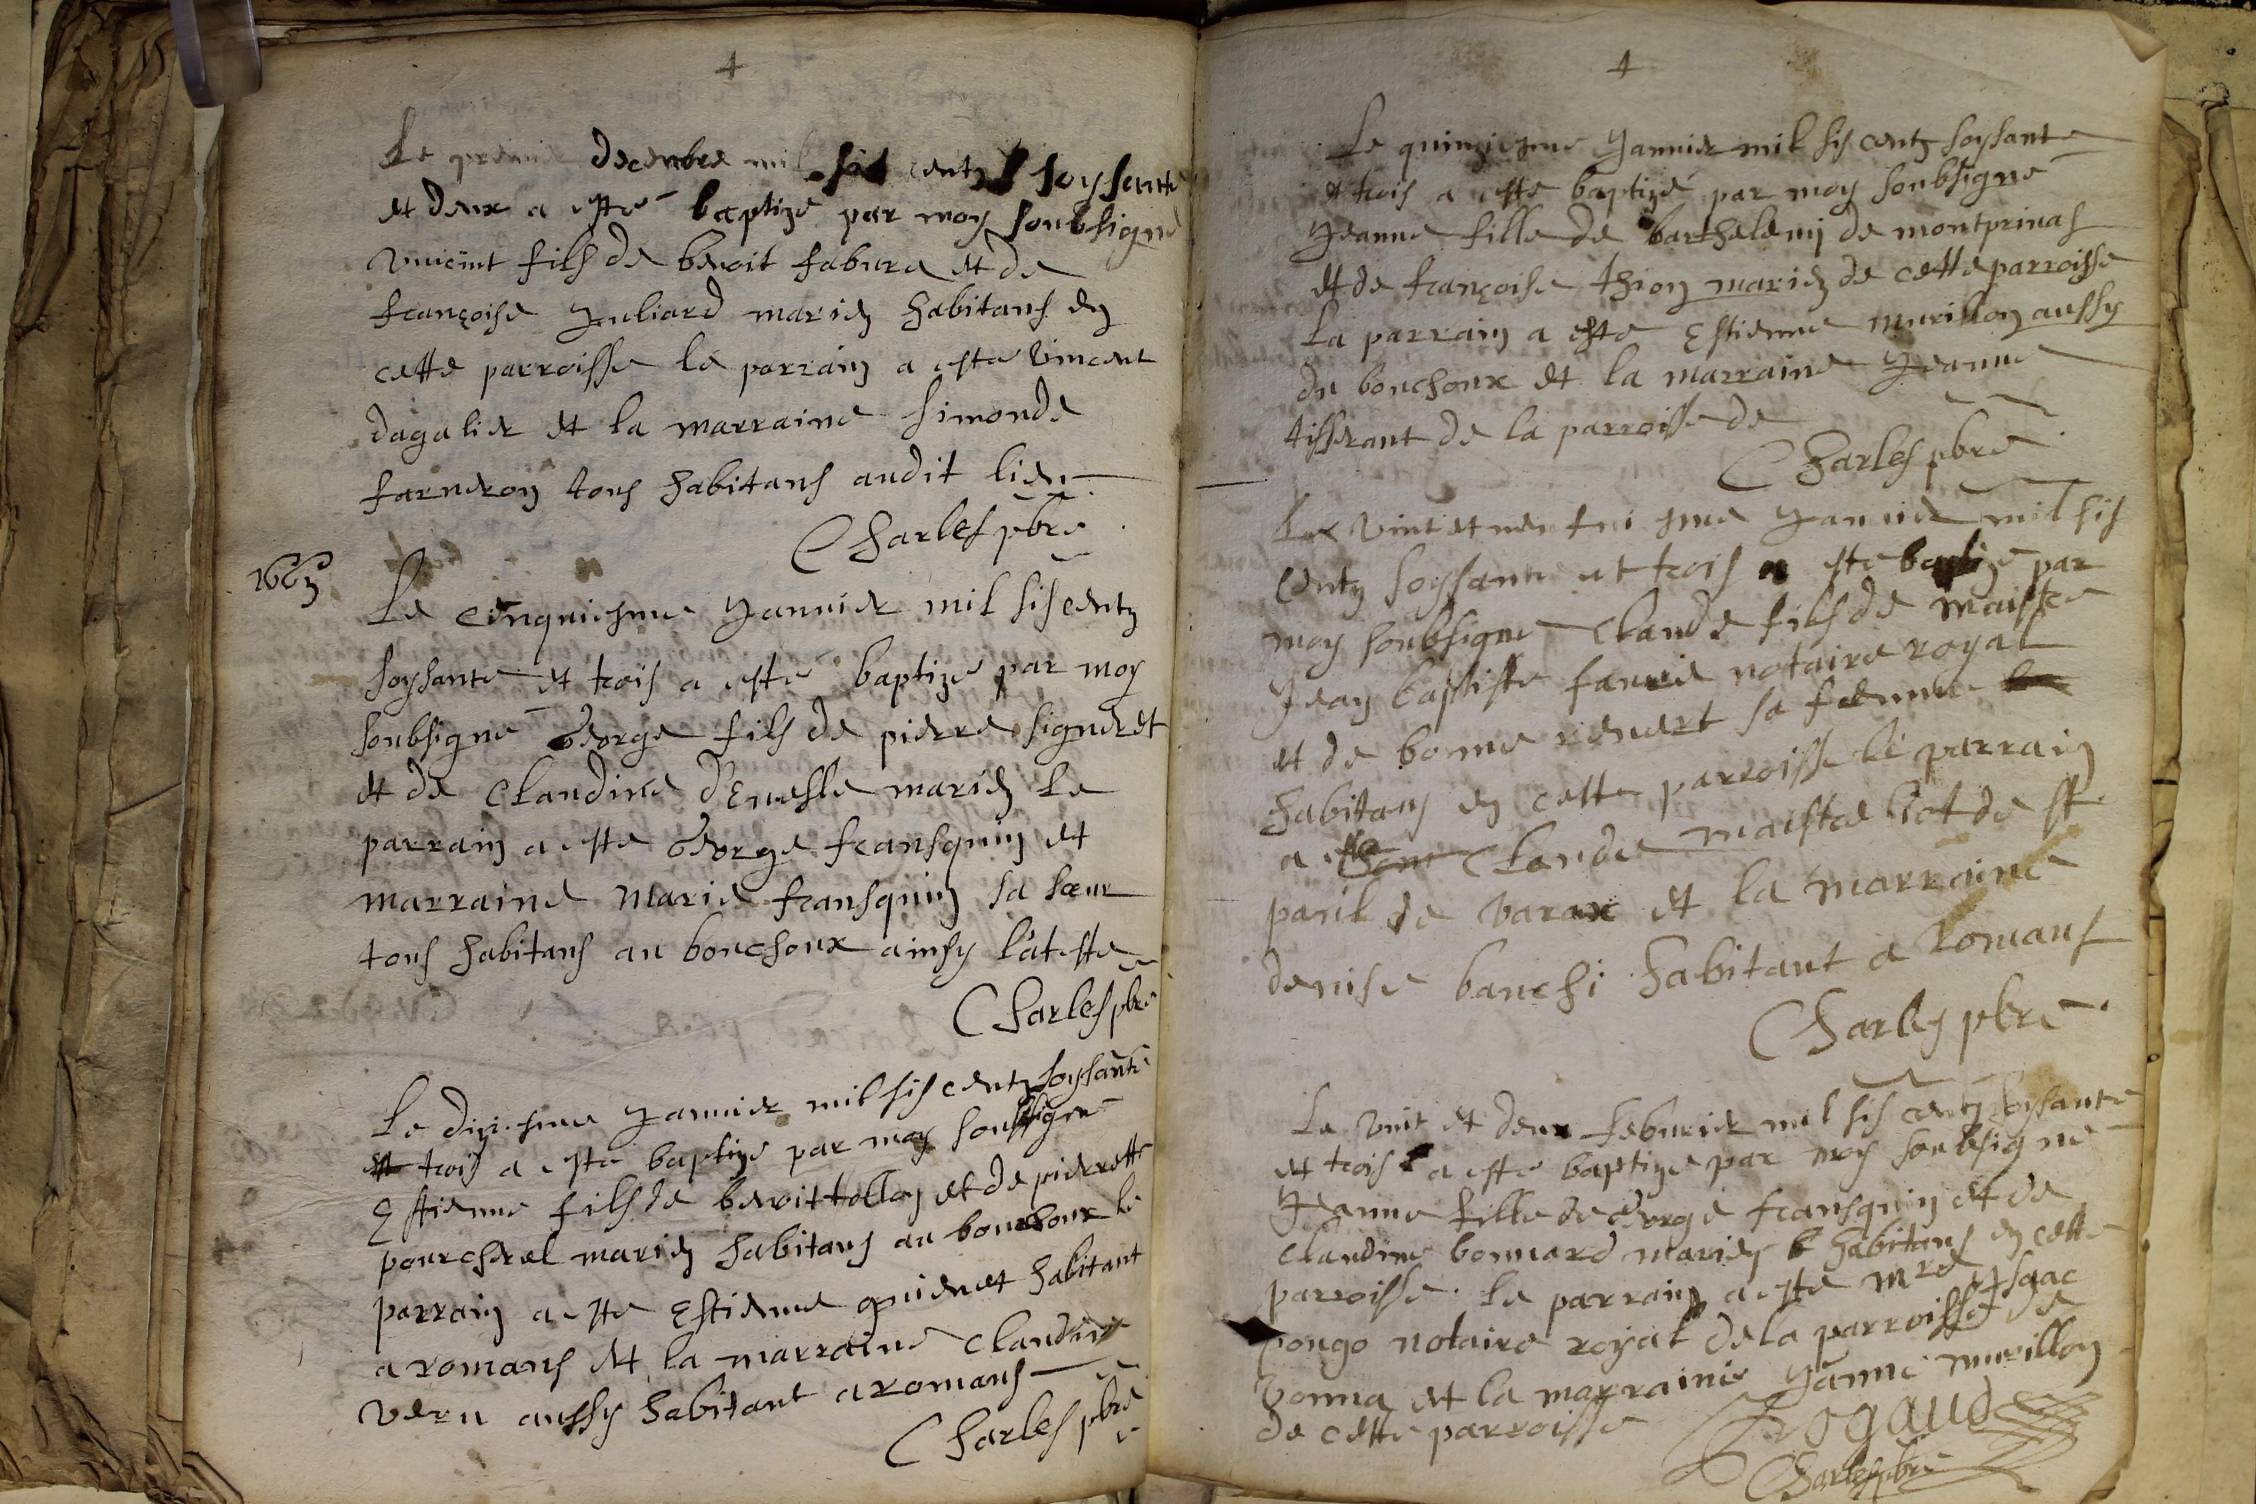 Le premier decembre mil sis centz soysante
et deux a esté baptizé par moy soubsigné
vincint fils de benoit fabure et de
françoise Juliard mariez habitans en
cette parroisse le parrain a este vincent
dagalier et la marraine simonde
farneron tous habitans audit lieu
Charles pbre
1663
Le cinquiesme Janvier mil sis centz
soysante et trois a esté baptizé par moy
soubsigné George fils de pierre signeret
et de Claudine d'Enesle mariez le
parrain a este George fransquin et
marraine Marie fransquin sa sœur
tous habitans au bouchoux ainsy l'ateste
Charles pbre
Le diziesme Janvier mil sis centz soysante
et trois a este baptize par moy soubsigne
Estienne fils de benoit tollon et de pierrette
pourcherel mariez habitans au bouchoux le
parrain a este Estienne guienet habitant
a romans et la marraine Claudine
veru aussy habitant a romans
Charles pbre
Le quinziesme Janvier mil sis centz soysante
et trois a este baptizé par moy soubsigné
Jeanne fille de barthelemj de montprinas
et de françoise thion mariez de cette parroisse
La parrain a esté Estienne murillon aussy
du bouchoux et la marraine Jeanne
tisserant de la parroisse de
Charles pbre
Lex vint et neufuiesme Janvier mil sis
Centz soysante et trois a este baptize par
moy soubsigne Claude fils de maistre
Jean baptiste favrie notaire royal
et de bonne revert sa femme
habitans en cette parroisse le parrain
a este Claude maistre liot de st.
paul de varax et la marraine
denise banchi habitant a Romans
Charles pbre
Le vint et deux feburier mil sis centz soysante
et trois a este baptize par moy soubsigné
Jeanne fille de George fransquin et de
Claudine bonnard mariez habitans en cette
parroisse. Le parrain a este mre Isaac
pougo notaire royal de la parroisse de
vonna et la marraine Janne murillon
de cette parroisse
Charles pbre